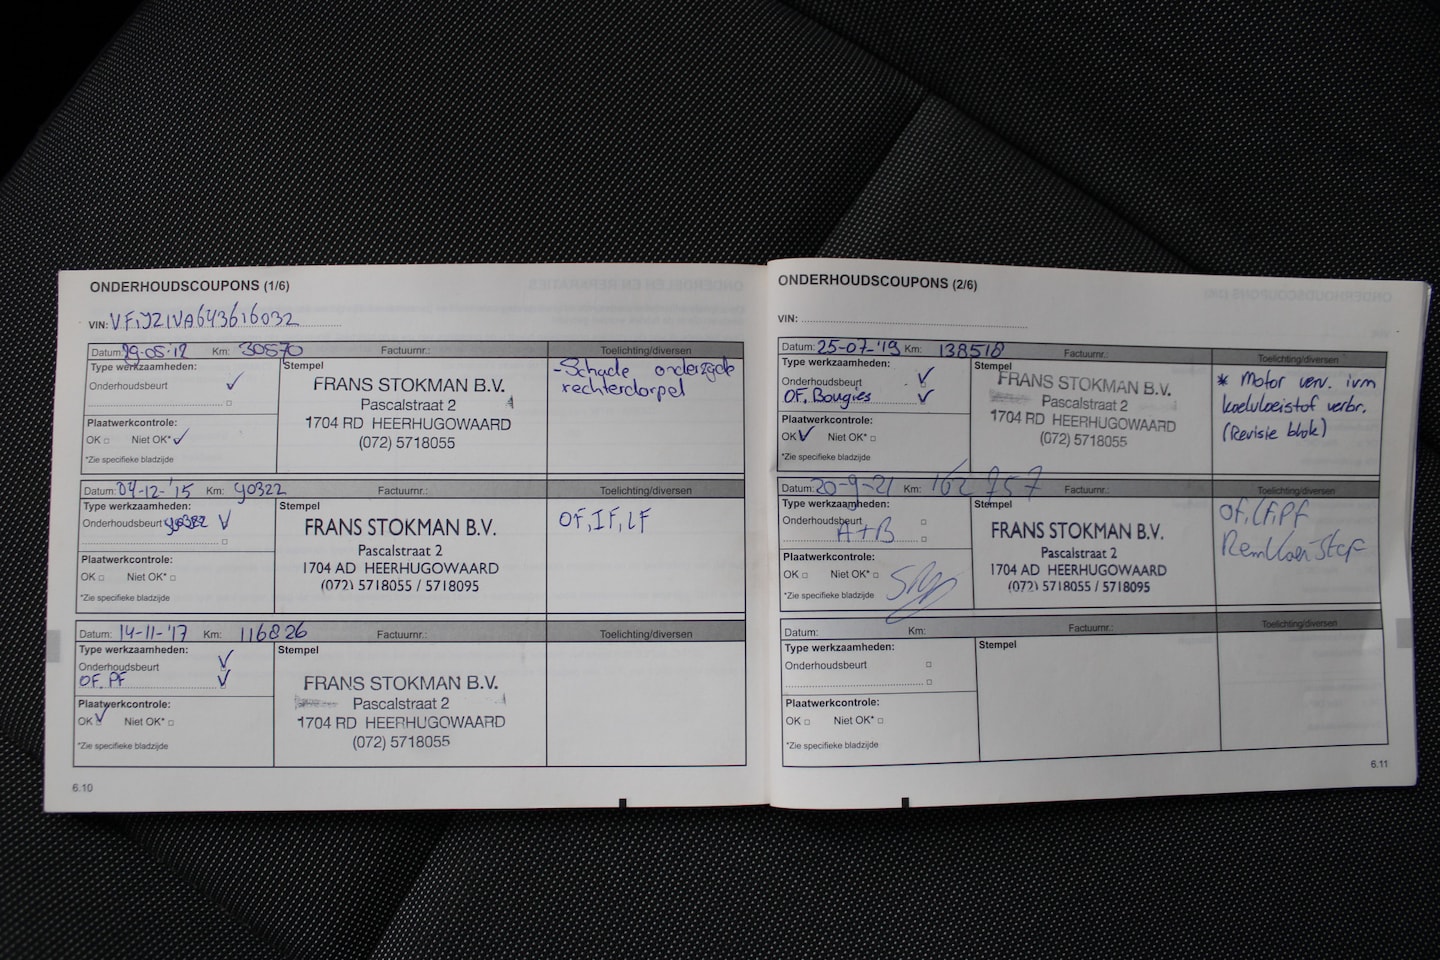 ONDERHOUDSCOUPONS (1/6)
VIN: VF1JZ1VA643616032
Datum: 29-05-'12 Km: 30570 Factuurnr.: Toelichting/diversen
Type werkzaamheden:
Onderhoudsbeurt ✓
Plaatwerkcontrole:
OK □ Niet OK* ✓
*Zie specifieke bladzijde
Stempel
FRANS STOKMAN B.V.
Pascalstraat 2
1704 RD HEERHUGOWAARD
(072) 5718055
-Schade onderzijde
rechterdorpel
Datum: 04-12-'15 Km: 90322 Factuurnr.: Toelichting/diversen
Type werkzaamheden:
Onderhoudsbeurt 90322 ✓
Plaatwerkcontrole:
OK □ Niet OK* □
*Zie specifieke bladzijde
Stempel
FRANS STOKMAN B.V.
Pascalstraat 2
1704 AD HEERHUGOWAARD
(072) 5718055 / 5718095
OF, IF, LF
Datum: 14-11-'17 Km: 116826 Factuurnr.: Toelichting/diversen
Type werkzaamheden:
Onderhoudsbeurt ✓
OF. PF ✓
Plaatwerkcontrole:
OK ✓ Niet OK* □
*Zie specifieke bladzijde
Stempel
FRANS STOKMAN B.V.
Pascalstraat 2
1704 RD HEERHUGOWAARD
(072) 5718055
6.10
ONDERHOUDSCOUPONS (2/6)
VIN:
Datum: 25-07-'19 Km: 138518 Factuurnr.: Toelichting/diversen
Type werkzaamheden:
Onderhoudsbeurt ✓
OF. Bougies ✓
Plaatwerkcontrole:
OK ✓ Niet OK* □
*Zie specifieke bladzijde
Stempel
FRANS STOKMAN B.V.
Pascalstraat 2
1704 RD HEERHUGOWAARD
(072) 5718055
* Motor verv. ivm
koelvloeistof verbr.
(Revisie blok)
Datum: 20-9-21 Km: 162 757 Factuurnr.: Toelichting/diversen
Type werkzaamheden:
Onderhoudsbeurt □
A+B □
Plaatwerkcontrole:
OK □ Niet OK* □
*Zie specifieke bladzijde
Stempel
FRANS STOKMAN B.V.
Pascalstraat 2
1704 AD HEERHUGOWAARD
(072) 5718055 / 5718095
OF, LF, PF
Datum: Km: Factuurnr.: Toelichting/diversen
Type werkzaamheden:
Onderhoudsbeurt □
Plaatwerkcontrole:
OK □ Niet OK* □
*Zie specifieke bladzijde
Stempel
6.11